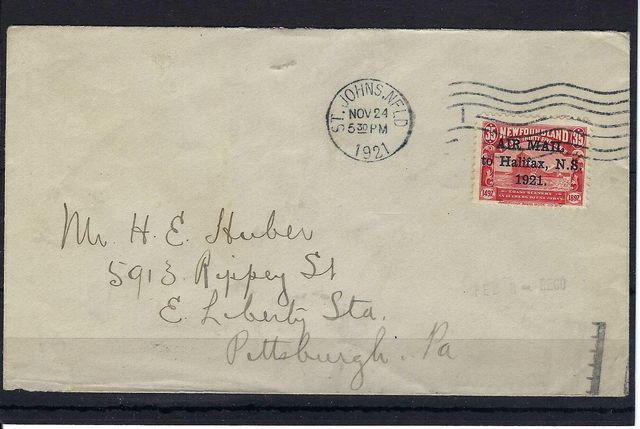 ST. JOHNS, NFLD
NOV 24
5 30 PM
1921
35 NEWFOUNDLAND 35
AIR MAIL
to Halifax, N.S.
1921.
1497 1897
Mr. H. E. Huber
5913 Rippey St
E. Liberty Sta.
Pittsburgh. Pa